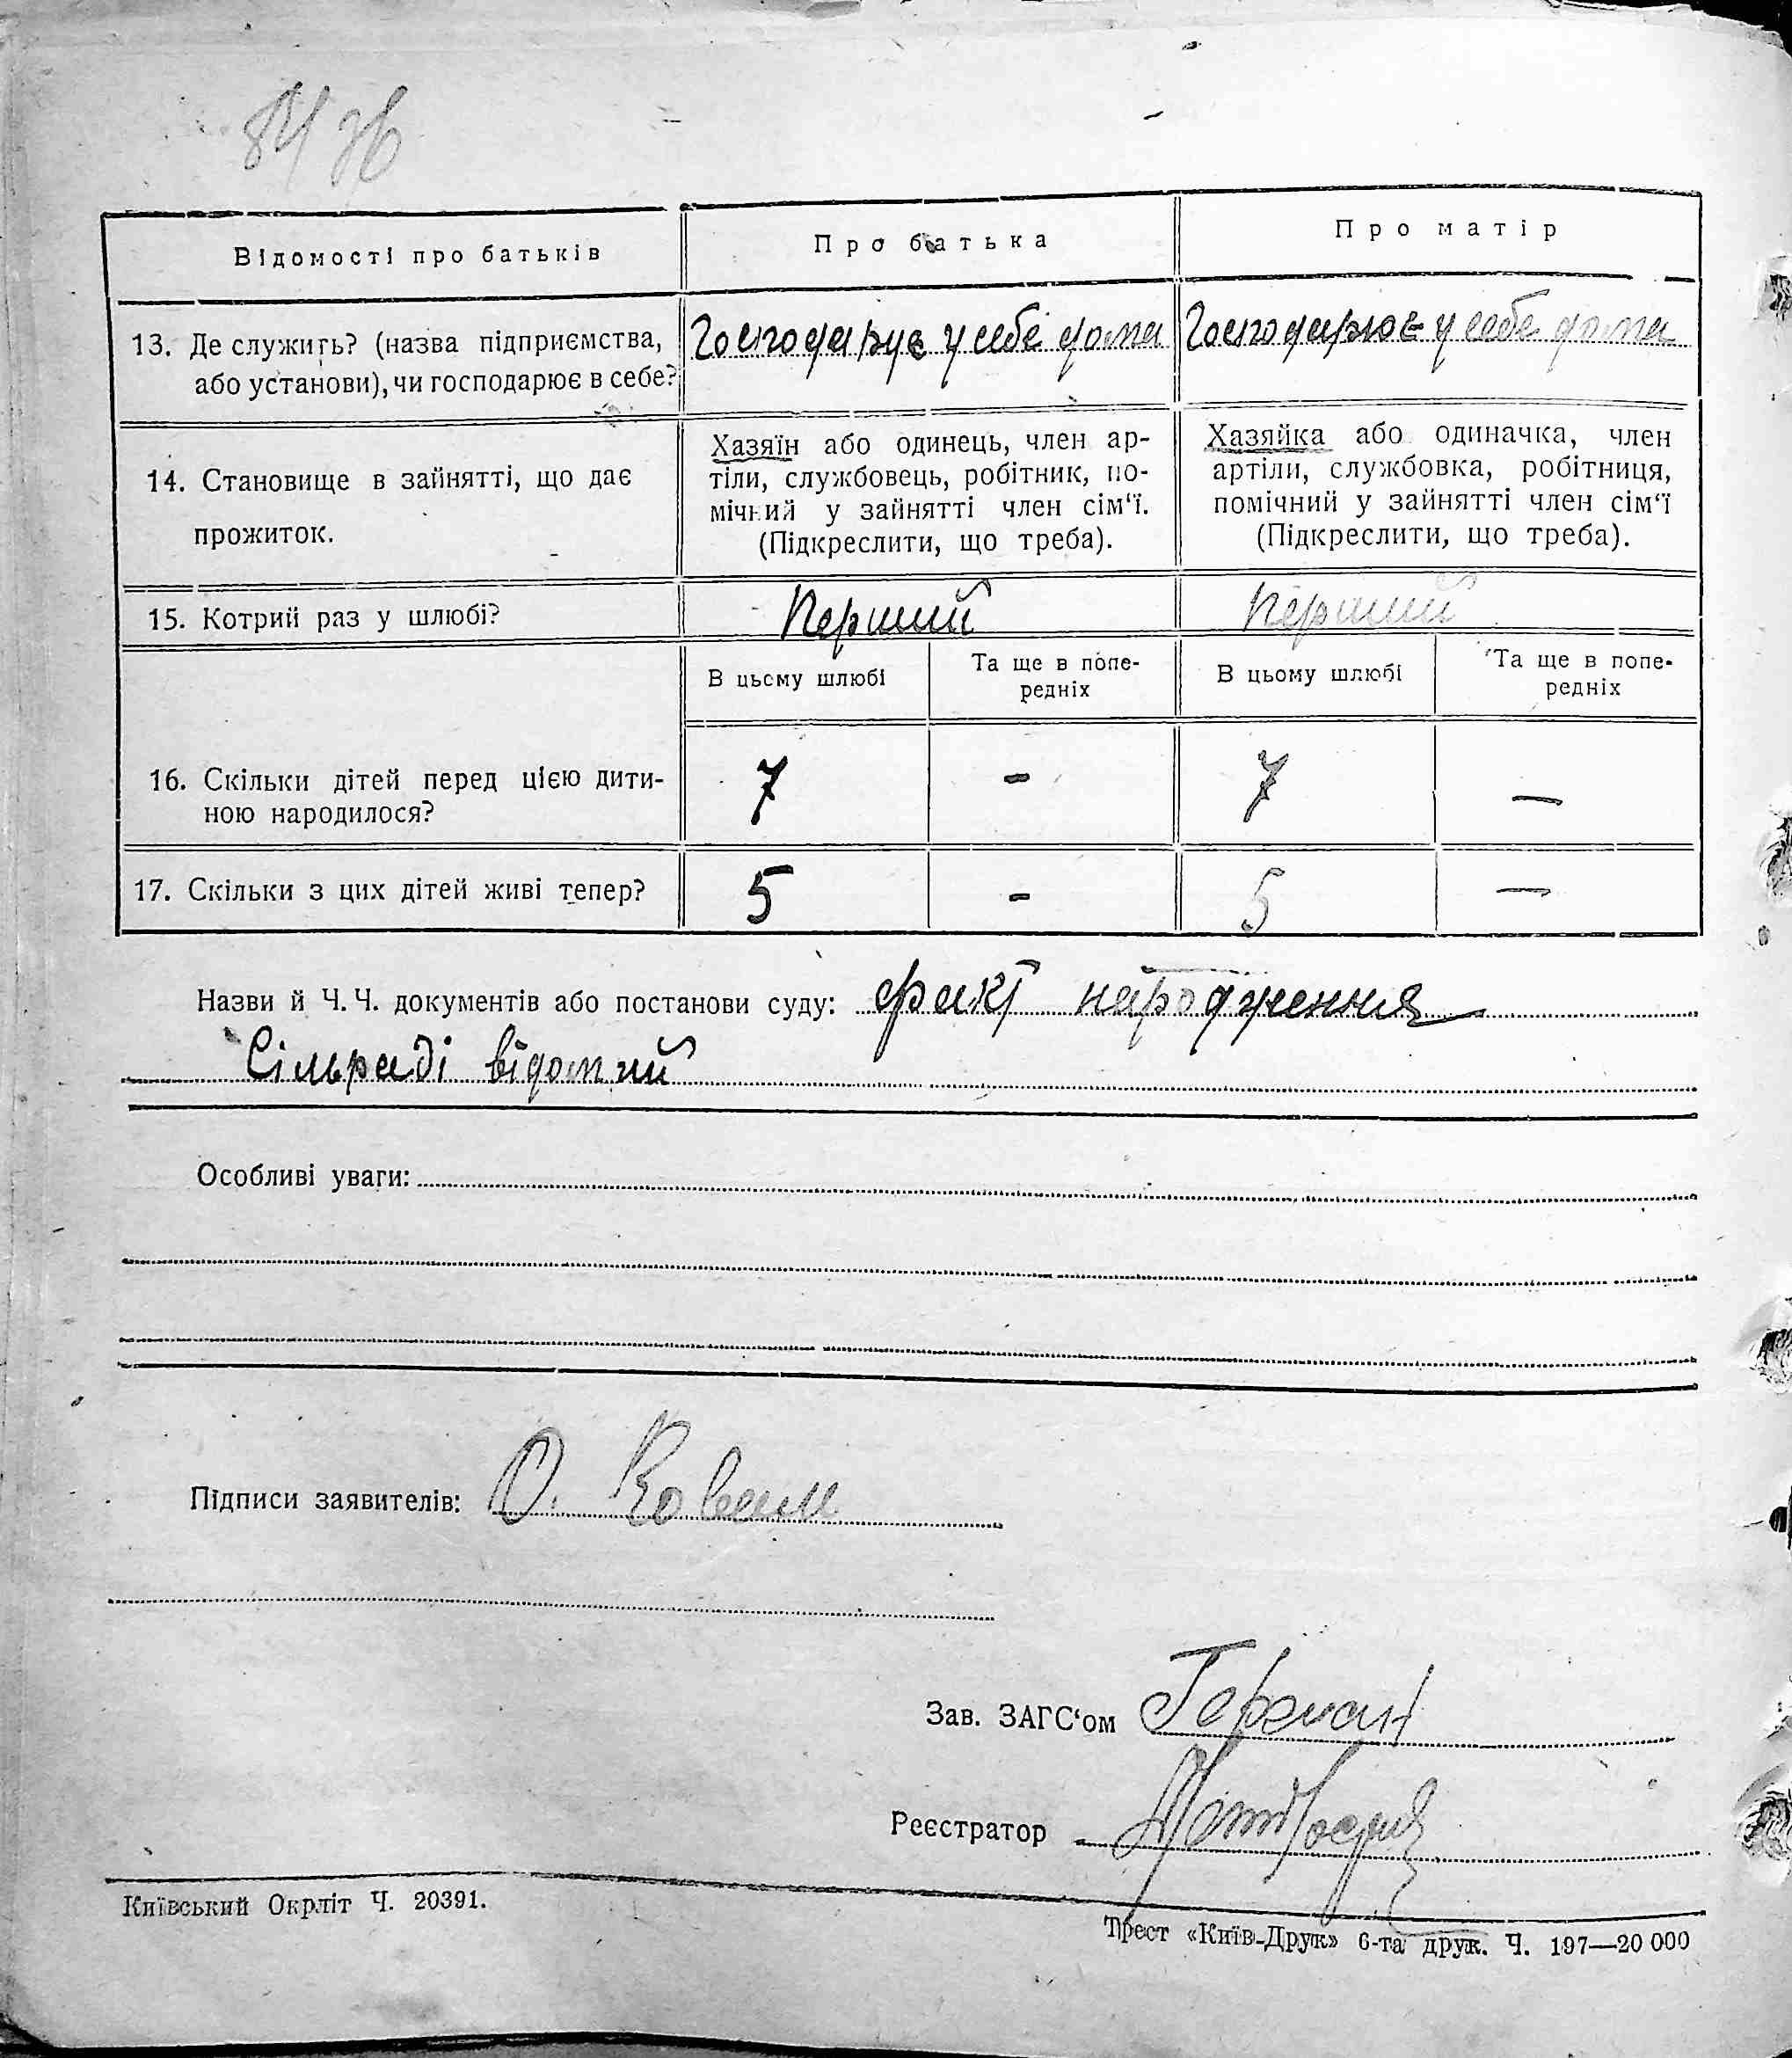 Відомості про батьків
Про батька
Про матір
13. Де служить? (назва підприємства,
або установи), чи господарює в себе?
Господарує у себе дома
Господарює у себе дома
14. Становище в зайнятті, що дає
прожиток.
Хазяїн або одинець, член ар-
тіли, службовець, робітник, по-
мічний у зайнятті член сім‘ї.
(Підкреслити, що треба).
Хазяйка або одиначка, член
артіли, службовка, робітниця,
помічний у зайнятті член сім‘ї
(Підкреслити, що треба).
15. Котрий раз у шлюбі?
Перший
Перший
В цьому шлюбі
Та ще в попе-
редніх
В цьому шлюбі
Та ще в попе-
редніх
16. Скільки дітей перед цією дити-
ною народилося?
7
-
7
—
17. Скільки з цих дітей живі тепер?
5
-
5
—
Назви й Ч. Ч. документів або постанови суду: факт народження
Сільраді відомий
Особливі уваги:
Підписи заявителів: О. Коваль
Зав. ЗАГС‘ом Герман
Реєстратор
Київський Окрліт Ч. 20391.
Трест «Київ-Друк» 6-та друк. Ч. 197—20 000